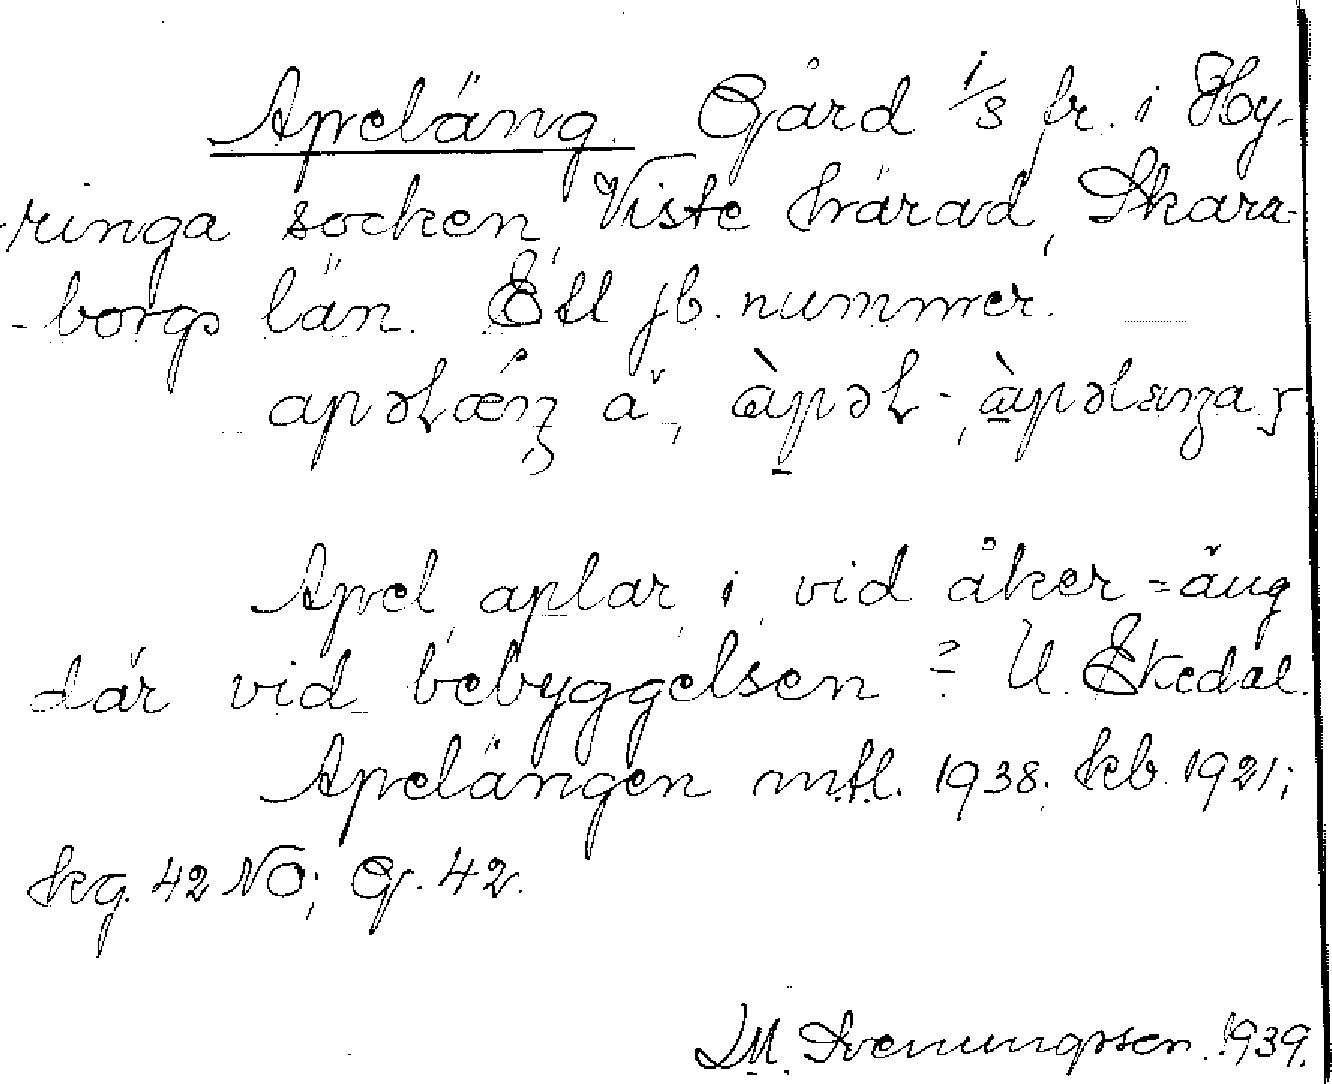 Apeläng. Gård 1/8 fr. i Hy-
-ringa socken, Viste härad, Skara-
-borgs län. Ett jb. nummer.
Apel, aplar, i, vid åker = äng
där vid bebyggelsen = U. Ekedal.
Apelängen mtl. 1938. kb. 1921;
kg. 42 NO; G. 42.
M. Svenungsson. 1939.